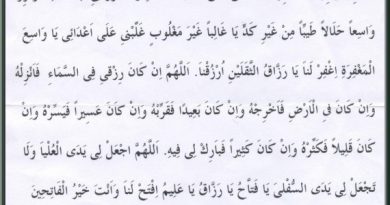 وَاسِعاً حَلَالاً طَيِّباً مِنْ غَيْرِ كَدٍّ يَا غَالِباً غَيْرَ مَغْلُوبٍ غَلِّبْنِي عَلَى اَعْدَائِى يَا وَاسِعَ
الْمَغْفِرَةِ اِغْفِرْ لَنَا يَا رَزَّاقُ الثَّقَلَيْنِ اُرْزُقْنَا. اَللّٰهُمَّ اِنْ كَانَ رِزْقِى فِى السَّمَاءِ فَاَنْزِلْهُ
وَاِنْ كَانَ فِى الْاَرْضِ فَاَخْرِجْهُ وَاِنْ كَانَ بَعِيدًا فَقَرِّبْهُ وَاِنْ كَانَ عَسِيراً فَيَسِّرْهُ وَاِنْ
كَانَ قَلِيلاً فَكَثِّرْهُ وَاِنْ كَانَ كَثِيراً فَبَارِكْ لِى فِيهِ. اَللّٰهُمَّ اجْعَلْ لِى يَدَى الْعُلْيَا وَلَا
تَجْعَلْ لِى يَدَى السُّفْلَىٰ يَا فَتَّاحُ يَا رَزَّاقُ يَا عَلِيمُ اِفْتَحْ لَنَا وَاَنْتَ خَيْرُ الْفَاتِحِينَ